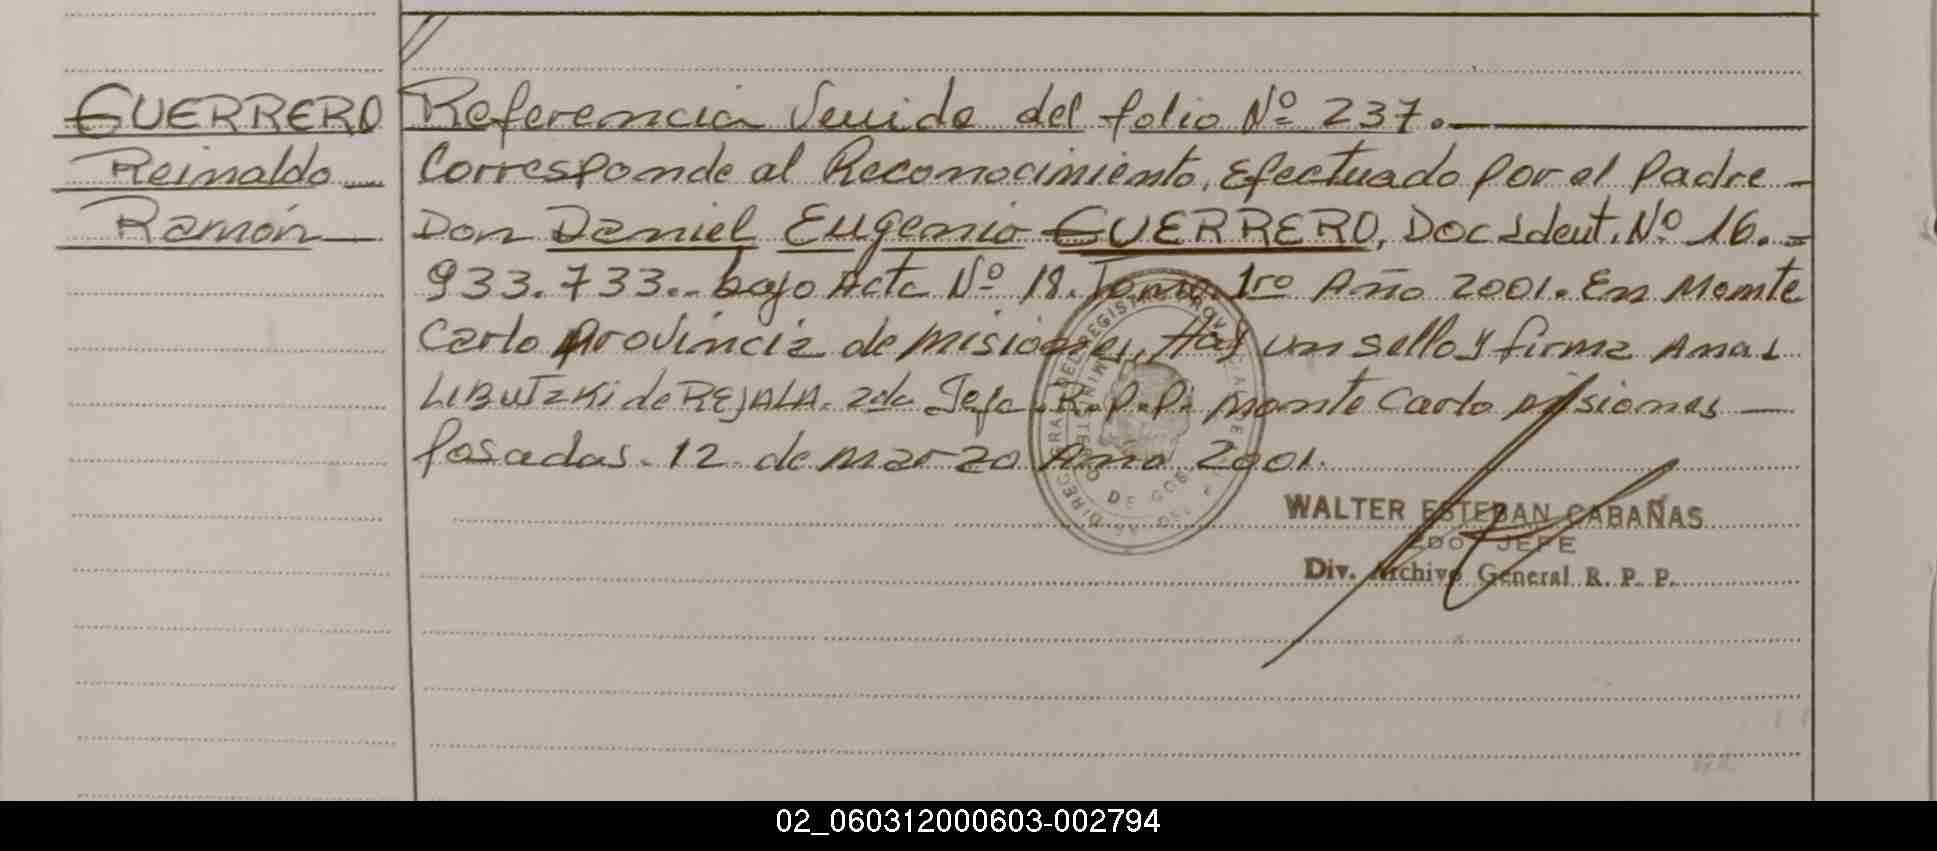 GUERRERO
Reinaldo
Ramón
Referencia Venida del folio Nº 237.
Corresponde al Reconocimiento, Efectuado por el Padre
Don Daniel Eugenio GUERRERO, Doc Ident. Nº 16.-
933.733.- bajo Acta Nº 18. Tomo. 1ro Año 2001. En Monte
Carlo Provincia de Misiones, Hay un sello y firma Ana L
LIBUTZKI de REJALA. 2da Jefa R.P.P. Monte Carlo Misiones
Posadas. 12 de marzo Año 2001.
WALTER ESTEBAN CABAÑAS
2DO JEFE
Div. Archivo General R. P. P.
02_060312000603-002794